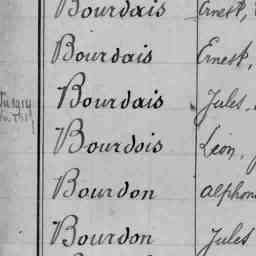 Bourdais Ernest,
Bourdais Ernest,
Bourdais Jules,
Bourdois Léon,
Bourdon Alphon
Bourdon Jules